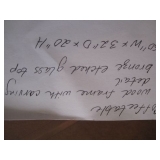 Coffee table
wood frame with carving
detail
bronze etched glass top
50"W x 32"D x 20"H